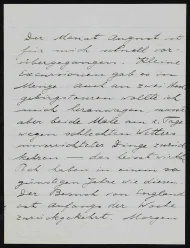 Der Monat August ist
für mich schnell vor-
übergegangen. Kleine
Excursionen gab es in
Menge. Auch an zwei Hoch-
gebirgstouren wollte ich
mich heranwagen
aber beide Male am 2. Tage
wegen schlechten Wetters
unverrichteter Dinge zurück-
kehren — das ist nicht
haben in einem so
günstigen Jahre wie diesem.
Der Besuch von England
ist Anfangs der Woche
zurückgekehrt. Morgen